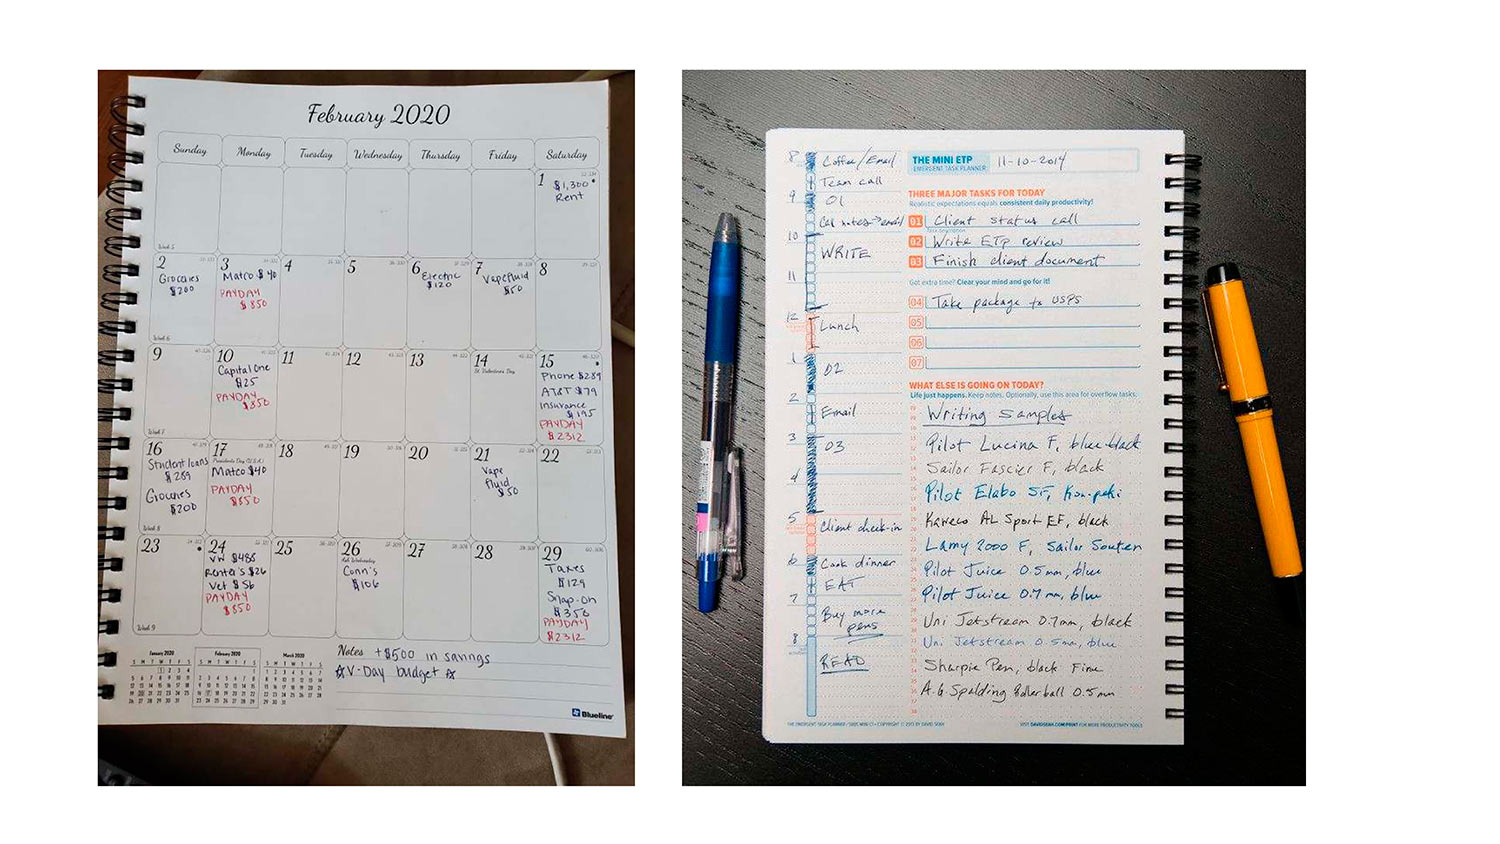 February 2020
Sunday Monday Tuesday Wednesday Thursday Friday Saturday
1
$1,300
Rent
Week 5
2 3 4 5 6 7 8
Groceries
$200
Matco $40
PAYDAY
$850
Electric
$120
Vape fluid
$50
Week 6
9 10 11 12 13 14 15
Capital One
$25
PAYDAY
$850
St. Valentine's Day
Phone $289
AT&T $79
insurance
$195
PAYDAY
$2312
Week 7
16 17 18 19 20 21 22
Student loans
$289
Groceries
$200
Presidents' Day (U.S.A.)
Matco $40
PAYDAY
$850
Vape
fluid
$50
Week 8
23 24 25 26 27 28 29
VW $488
Renter's $26
Vet $56
PAYDAY
$850
Ash Wednesday
Conn's
$106
Taxes
$129
Snap-On
$350
PAYDAY
$2312
Week 9
January 2020
February 2020
March 2020
Notes +$500 in savings
V-Day budget
Blueline
THE MINI ETP
EMERGENT TASK PLANNER
11-10-2014
8 Coffee/Email
Team call
9 01
Call notes → email
10
WRITE
11
12
Lunch
1
02
2
Email
3
03
4
5
Client check-in
6
Cook dinner
EAT
7
Buy more
pens
8
READ
THREE MAJOR TASKS FOR TODAY
Realistic expectations equals consistent daily productivity!
01 Client status call
02 Write ETP review
03 Finish client document
Got extra time? Clear your mind and go for it!
04 Take package to USPS
05
06
07
WHAT ELSE IS GOING ON TODAY?
Life just happens. Keep notes. Optionally, use this area for overflow tasks.
Writing Samples
Pilot Lucina F, blue black
Sailor Fascier F, black
Pilot Elabo SF, Kon-peki
Kaweco AL Sport EF, black
Lamy 2000 F, Sailor Souten
Pilot Juice 0.5mm, blue
Pilot Juice 0.7mm, blue
Uni Jetstream 0.7mm, black
Uni Jetstream 0.5mm, blue
Sharpie Pen, black Fine
A.G. Spalding Rollerball 0.5mm